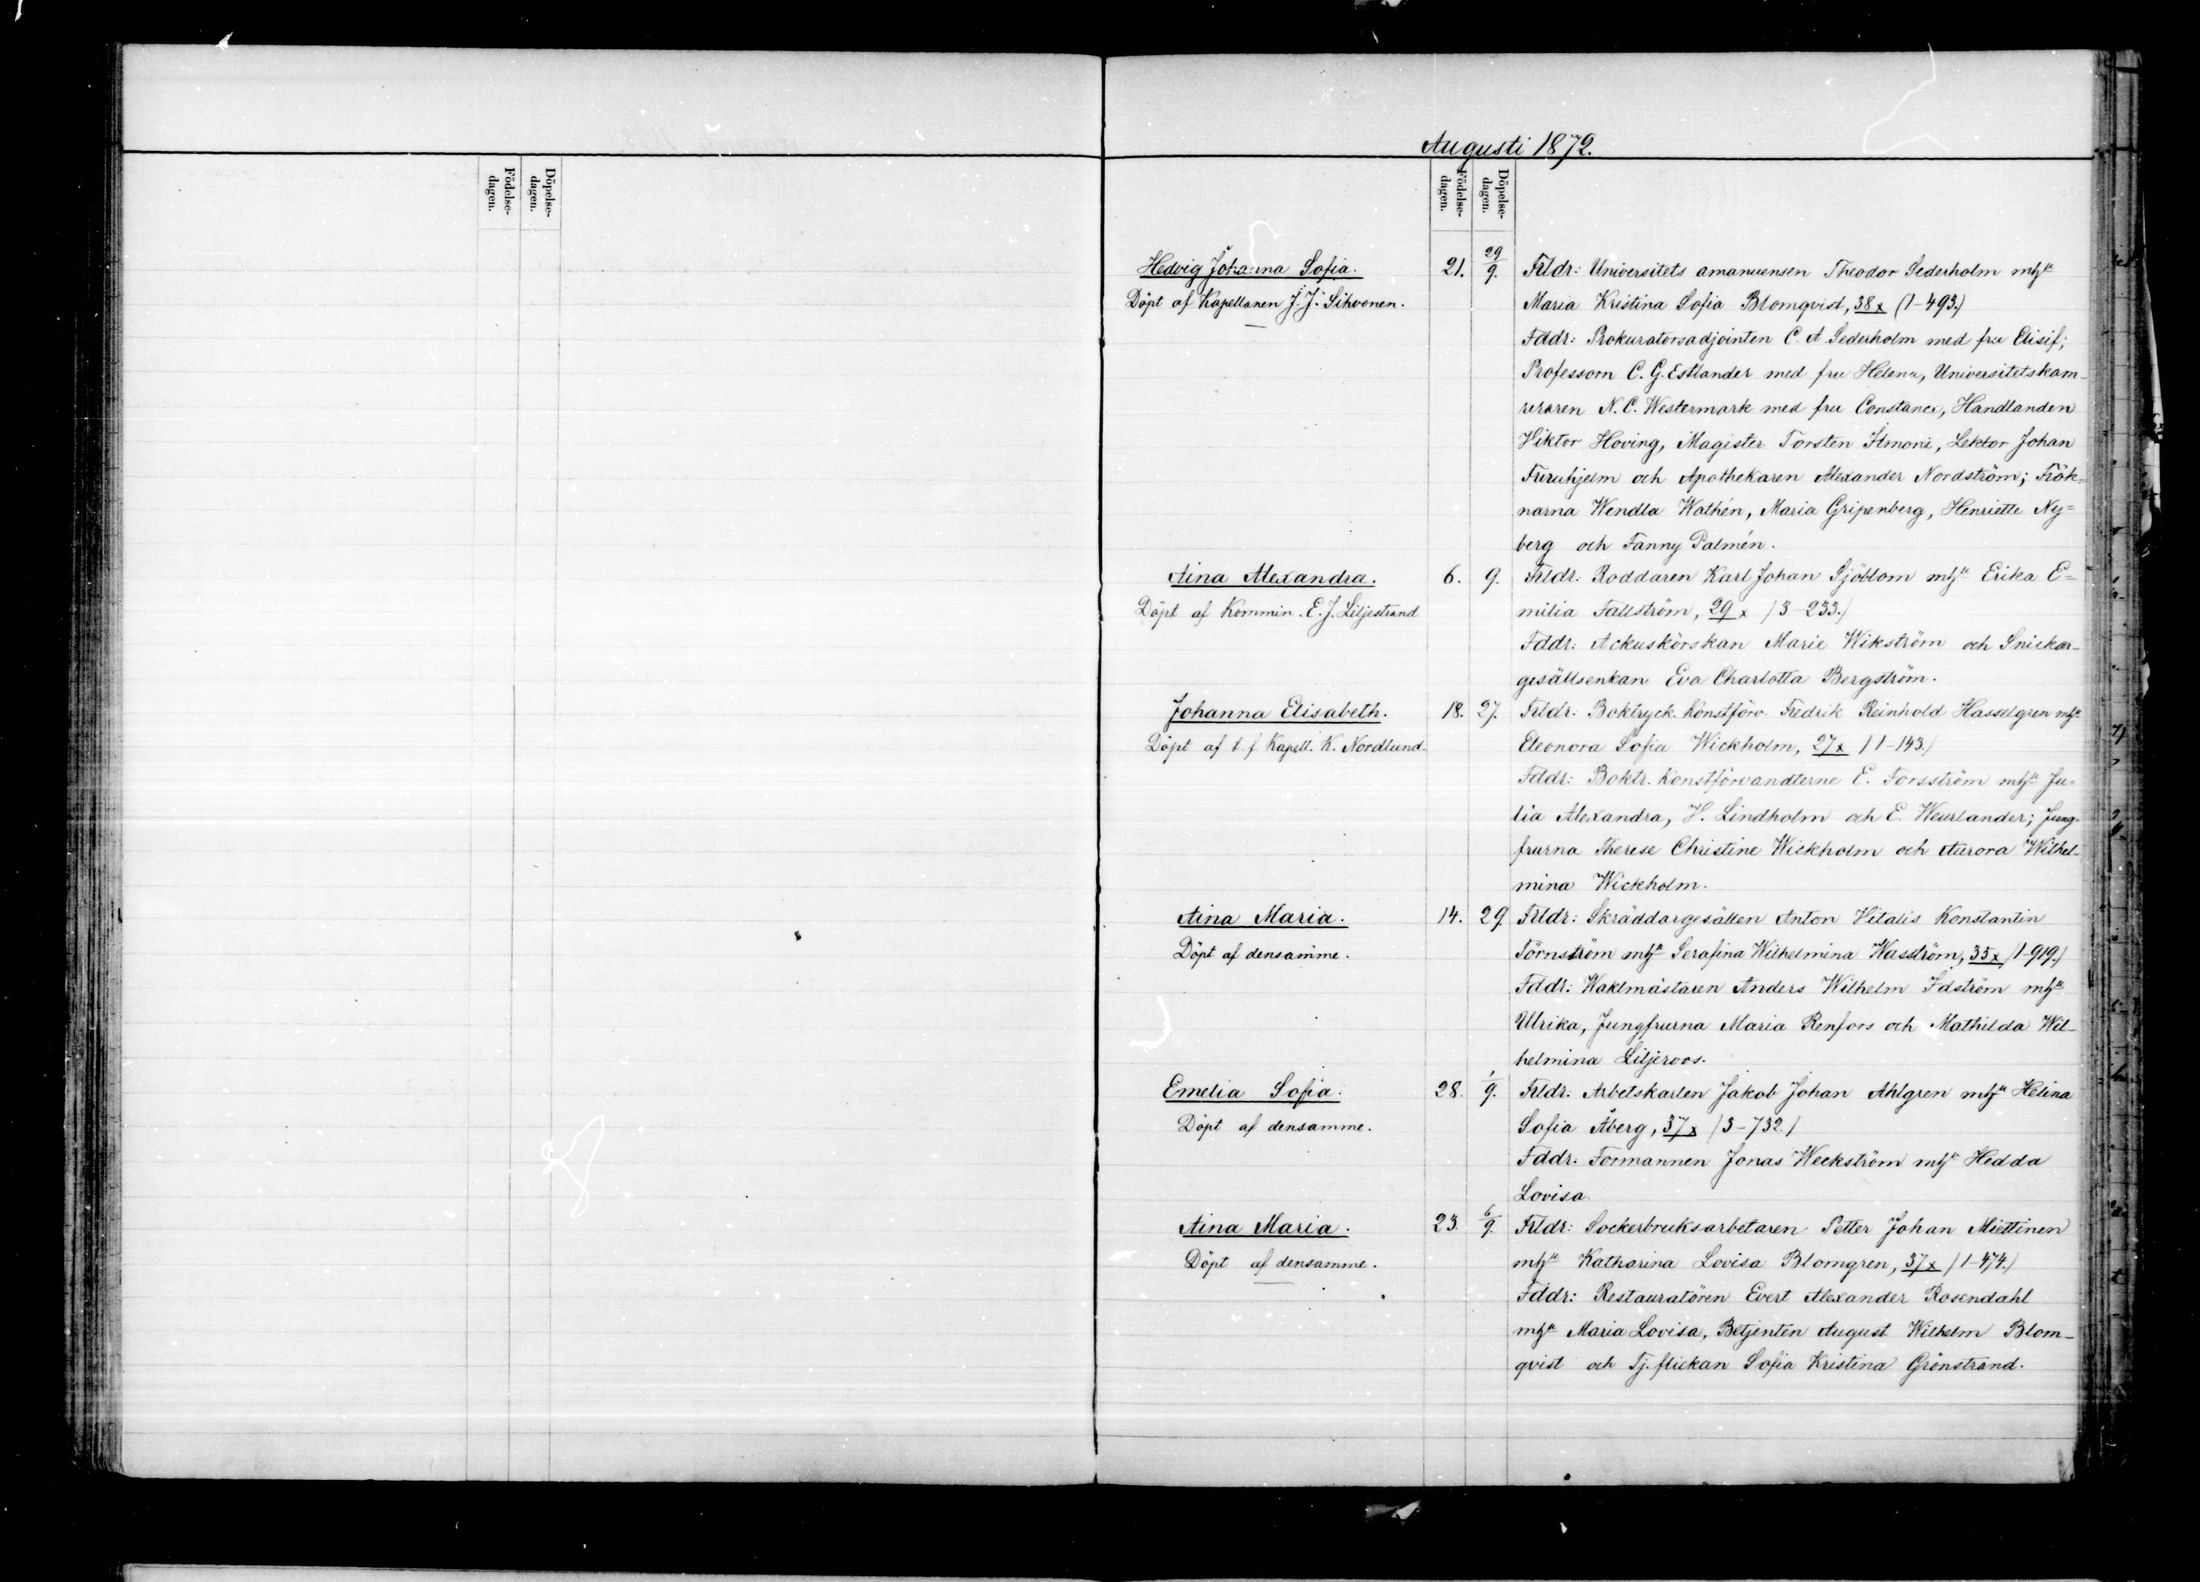 Födelse-
dagen.
Döpelse-
dagen.
Augusti 1872.
Födelse-
dagen.
Döpelse-
dagen.
Hedvig Johanna Sofia. 21. 29/9. Frldr: Universitets amanuensen Theodor Sederholm mhu
Döpt af Kapellanen J. J. Sihvonen. Maria Kristina Sofia Blomqvist, 38 x (1-493.)
Fddr: Prokuratorsadjointen C. A Sederholm med fru Elisif;
Professorn C. G. Estlander med fru Helena, Universitetskam-
reraren N. C. Westermark med fru Constance, Handlanden
Viktor Hoving, Magister Torsten Ilmoni, Lektor Johan
Furuhjelm och Apothekaren Alexander Nordström; Frök-
narna Wendla Wathén, Maria Gripenberg, Henriette Ny=
berg och Fanny Palmén.
Aina Alexandra. 6. 9. Frldr. Roddaren Karl Johan Sjöblom mhu Erika E=
Döpt af Kommin. E. J. Liljestrand milia Fallström, 29 x /3-233./
Fddr: Ackuskörskan Marie Wikström och Snickar-
gesällsenkan Eva Charlotta Bergström.
Johanna Elisabeth. 18. 27. Frldr. Boktryck. Konstförv. Fredrik Reinhold Hasselgren mhu
Döpt af t. f. Kapell. K. Nordlund. Eleonora Sofia Wickholm, 27 x /1-143./
Fddr: Boktr. Konstförvandterne E. Forsström mhu Ju-
lia Alexandra, H. Lindholm och E. Weurlander; Jung-
frurna Therese Christine Wickholm och Aurora Wilhel-
mina Wickholm.
Aina Maria. 14. 29. Frldr: Skräddargesällen Anton Vitalis Konstantin
Döpt af densamme. Törnström mhu Serafina Wilhelmina Wasström, 35 x /1-919./
Fddr: Waktmästaren Anders Wilhelm Idström mhu
Ulrika, Jungfrurna Maria Renfors och Mathilda Wil-
helmina Liljeroos.
Emelia Sofia. 28. 1/9. Frldr. Arbetskarlen Jakob Johan Ahlgren mhu Helina
Döpt af densamme. Sofia Åberg, 37 x /3-732./
Fddr. Formannen Jonas Weckström mhu Hedda
Lovisa.
Aina Maria. 23. 6/9. Frldr: Sockerbruksarbetaren Petter Johan Miettinen
Döpt af densamme. mhu Katharina Lovisa Blomgren, 37 x /1-474./
Fddr: Restauratören Evert Alexander Rosendahl
mhu Maria Lovisa, Betjenten August Wilhelm Blom-
qvist och Tj. flickan Sofia Kristina Grönstrand.